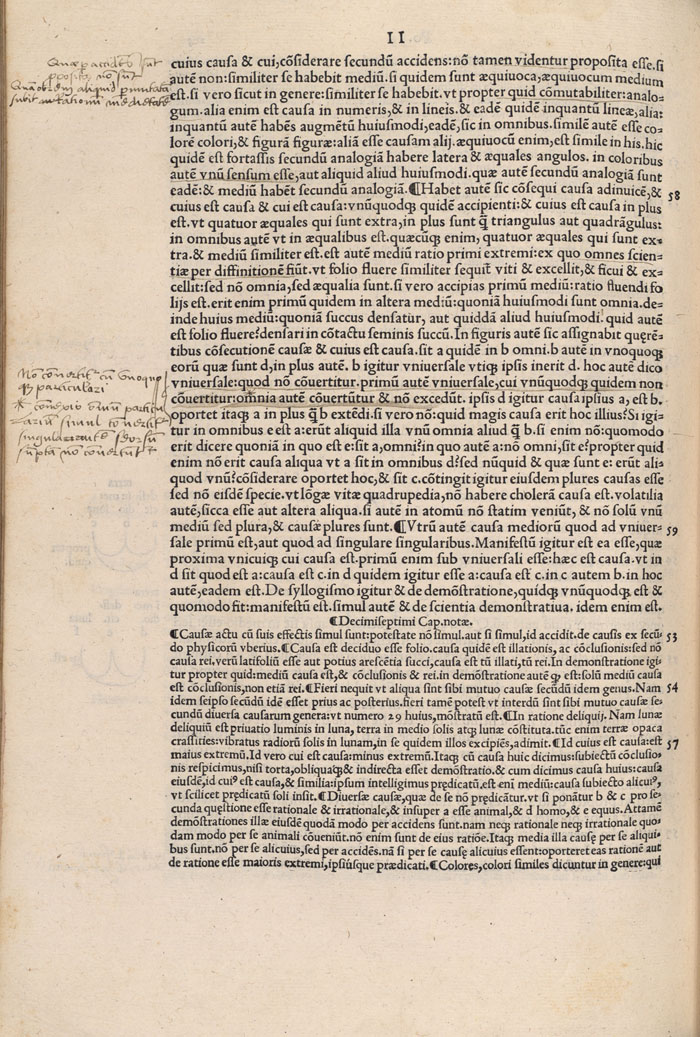 II
cuius causa & cui,cōsiderare secundū accidens:nō tamen videntur proposita esse.si
autē non:similiter se habebit mediū.si quidem sunt æquiuoca,æquiuocum medium
est.si vero sicut in genere:similiter se habebit.vt propter quid cōmutabiliter:analo-
gum.alia enim est causa in numeris,& in lineis.& eadē quidē inquantū lineæ,alia:
inquantū autē habēs augmētū huiusmodi,eadē,sic in omnibus.similē autē esse co-
lorē colori,& figurā figuræ:aliā esse causam alij.æquiuocū enim,est simile in his.hic
quidē est fortassis secundū analogiā habere latera & æquales angulos. in coloribus
autē vnū sensum esse,aut aliquid aliud huiusmodi.quæ autē secundū analogiā sunt
eadē:& mediū habēt secundū analogiā.¶Habet autē sic cōsequi causa adinuicē,&
58
cuius est causa & cui est causa:vnūquodq; quidē accipienti:& cuius est causa in plus
est.vt quatuor æquales qui sunt extra,in plus sunt q̄ triangulus aut quadrāgulus:
in omnibus autē vt in æqualibus est.quæcūq; enim, quatuor æquales qui sunt ex-
tra.& mediū similiter est.est autē mediū ratio primi extremi:ex quo omnes scien-
tiæ per diffinitionē fiūt.vt folio fluere similiter sequit̄ viti & excellit,& ficui & ex-
cellit:sed nō omnia,sed æqualia sunt.si vero accipias primū mediū:ratio fluendi fo
lijs est.erit enim primū quidem in altera mediū:quoniā huiusmodi sunt omnia.de-
inde huius mediū:quoniā succus densatur, aut quiddā aliud huiusmodi. quid autē
est folio fluere?densari in cōtactu seminis succū.In figuris autē sic assignabit quęrē-
tibus cōsecutionē causæ & cuius est causa.sit a quidē in b omni.b autē in vnoquoq;
eorū quæ sunt d,in plus autē. b igitur vniuersale vtiq; ipsis inerit d. hoc autē dico
vniuersale:quod nō cōuertitur.primū autē vniuersale,cui vnūquodq; quidem non
cōuertitur:omnia autē cōuertūtur & nō excedūt. ipsis d igitur causa ipsius a, est b.
oportet itaq; a in plus q̄ b extēdi.si vero nō:quid magis causa erit hoc illius?Si igi-
tur in omnibus e est a:erūt aliquid illa vnū omnia aliud q̄ b.si enim nō:quomodo
erit dicere quoniā in quo est e:sit a,omni?in quo autē a:nō omni,sit e?propter quid
enim nō erit causa aliqua vt a sit in omnibus d?sed nūquid & quæ sunt e: erūt ali-
quod vnū?cōsiderare oportet hoc,& sit c.cōtingit igitur eiusdem plures causas esse
sed nō eisdē specie.vt lōgæ vitæ quadrupedia,nō habere cholerā causa est.volatilia
autē,sicca esse aut altera aliqua.si autē in atomū nō statim veniūt, & nō solū vnū
mediū sed plura,& causæ plures sunt.¶Vtrū autē causa mediorū quod ad vniuer-
59
sale primū est,aut quod ad singulare singularibus.Manifestū igitur est ea esse,quæ
proxima vnicuiq; cui causa est.primū enim sub vniuersali esse:hæc est causa.vt in
d sit quod est a:causa est c.in d quidem igitur esse a:causa est c.in c autem b.in hoc
autē,eadem est.De syllogismo igitur & de demōstratione,quidq; vnūquodq; est &
quomodo fit:manifestū est.simul autē & de scientia demonstratiua. idem enim est.
¶Decimiseptimi Cap.notæ.
¶Causæ actu cū suis effectis simul sunt:potestate nō simul.aut si simul,id accidit.de causis ex secū-
53
do physicorū vberius.¶Causa est deciduo esse folio.causa quidē est illationis, ac cōclusionis:sed nō
causa rei.verū latifoliū esse aut potius arescētia succi,causa est tū illati,tū rei.In demonstratione igi-
tur propter quid:mediū causa est,& cōclusionis & rei.in demōstratione autē q; est:solū mediū causa
est cōclusionis,non etiā rei.¶Fieri nequit vt aliqua sint sibi mutuo causæ secūdū idem genus.Nam
54
idem seipso secūdū idē esset prius ac posterius.fieri tamē potest vt interdū sint sibi mutuo causæ se-
cundū diuersa causarum genera:vt numero 29 huius,mōstratū est.¶In ratione deliquij. Nam lunæ
deliquiū est priuatio luminis in luna, terra in medio solis atq; lunæ cōstituta.tūc enim terræ opaca
crassities:vibratus radiorū solis in lunam,in se quidem illos excipiēs,adimit.¶Id cuius est causa:est
57
maius extremū.Id vero cui est causa:minus extremū.Itaq; cū causa huic dicimus:subiectū cōclusio-
nis respicimus,nisi torta,obliquaq; & indirecta esset demōstratio.& cum dicimus causa huius:causa
eiusdē,id cui⁹ est causa,& similia:ipsum intelligimus prędicatū.est enī mediū:causa subiecto alicui⁹,
vt scilicet prędicatū soli insit.¶Diuersæ causæ,quæ de se nō prędicātur.vt si ponātur b & c pro se-
cunda quęstione esse rationale & irrationale,& insuper a esse animal,& d homo,& e equus. Attamē
demōstrationes illæ eiusdē quodā modo per accidens sunt.nam neq; rationale neq; irrationale quo-
dam modo per se animali cōueniūt.nō enim sunt de eius ratiōe.Itaq; media illa causę per se aliqui-
bus sunt.nō per se alicuius,sed per accidēs.nā si per se causę alicuius essent:oporteret eas rationē aut
de ratione esse maioris extremi,ipsiúsque prædicati.¶Colores,colori similes dicuntur in genere:qui